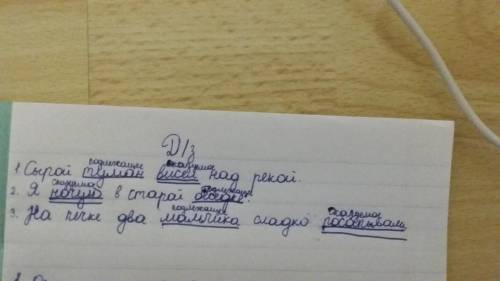 Д/з
подлежащее сказуемое
1. Сырой туман висел над рекой.
сказуемое подлежащее
2. Я ночую в старой беседке.
подлежащее сказуемое
3. На печке два мальчика сладко посапывали